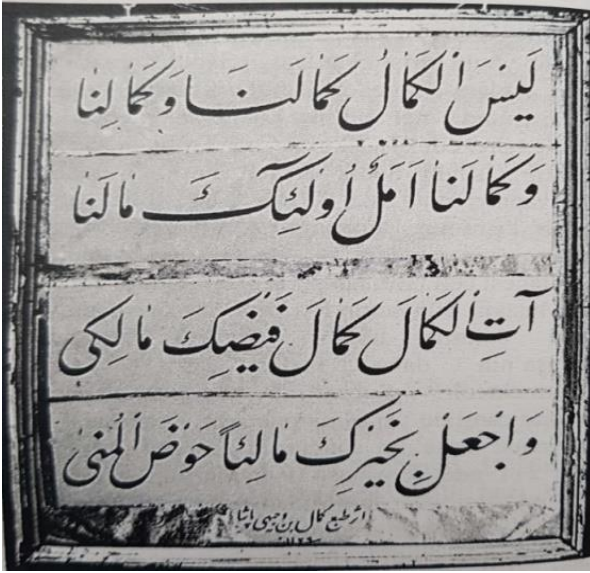 لَيْسَ الْكَمَالُ كَمَالَنَا وَكَمَالِنَا
وَكَمَالَنَا اَمَلُ اُولٰئِكَ مٰالَنَا
آتِ الْكَمَالَ كَمَالَ فَيْضِكَ مٰالِكِى
وَاجْعَلْ بِخَيْرِكَ مٰالِئاً حَوْضَ الْمُنىٰ
اثر طبع كمال بن وجيهى پاشا